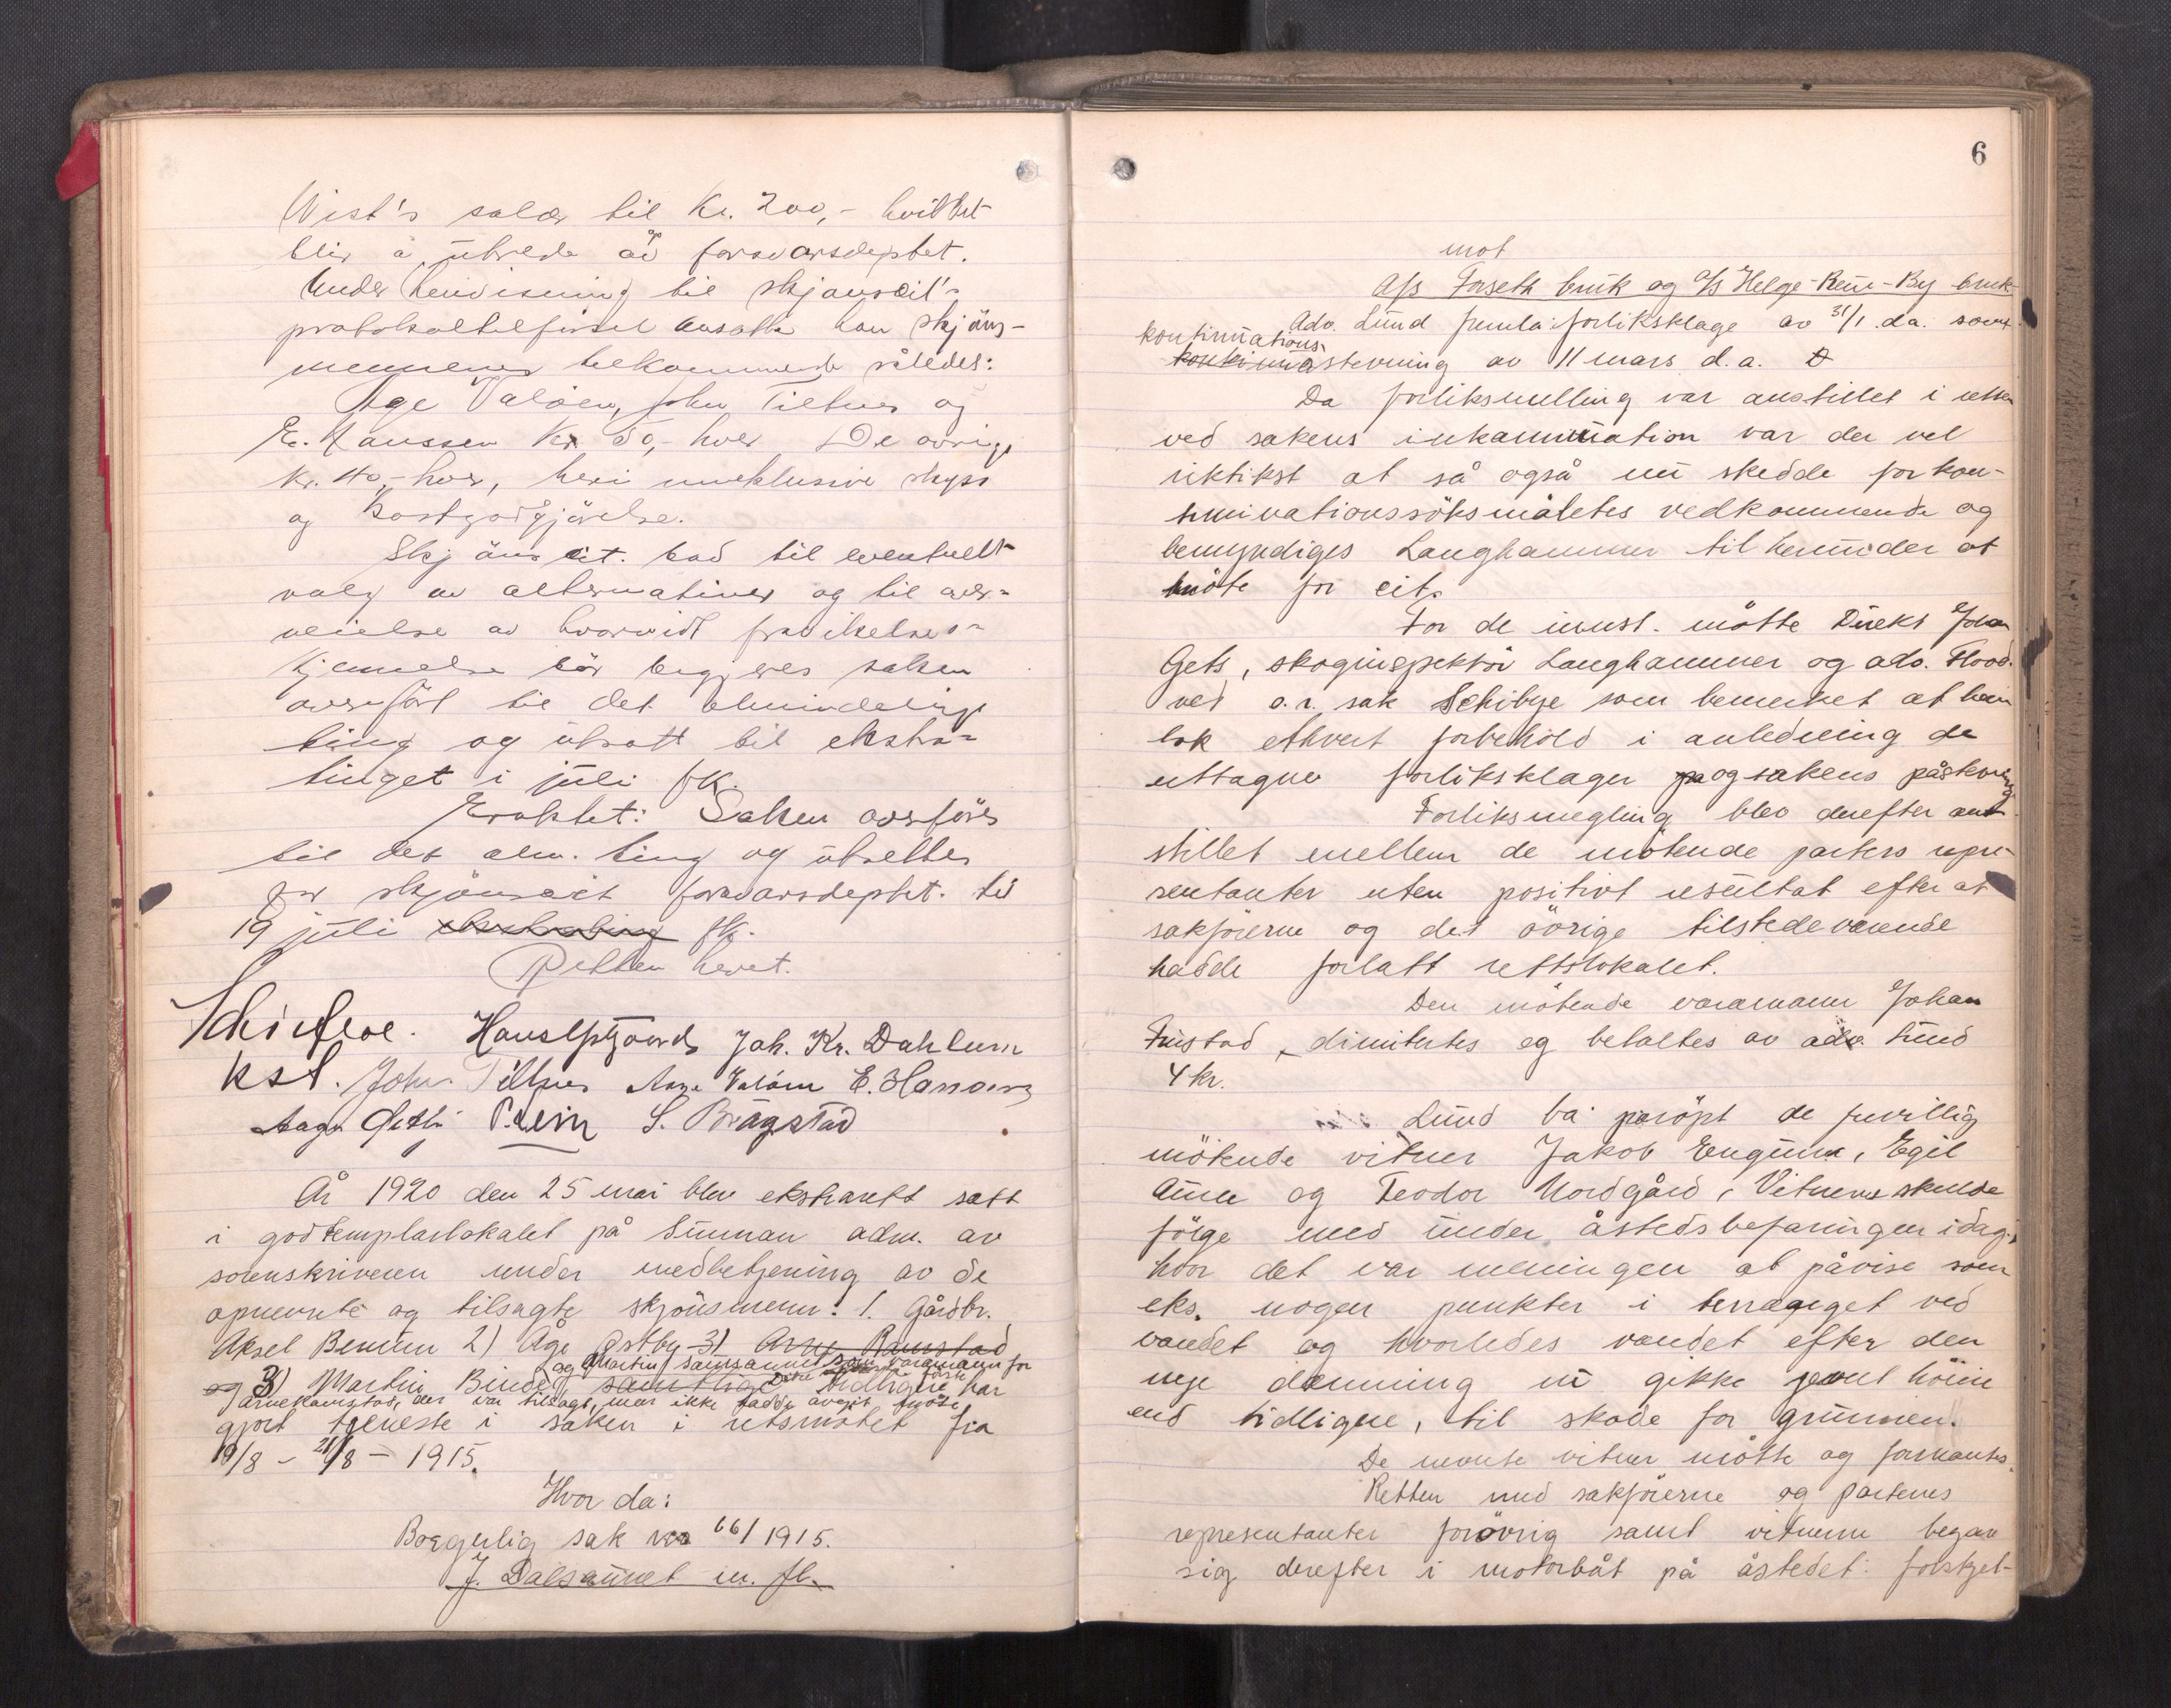 Wist's salær til Kr. 200,- hvilket
blir å utrede av forsvarsdeptet.
Under henvisning til skjønscit's
protokoltilførsel ansatte han skjøns-
mennenes tilkommende således:
Åge Valøen, John Tiltnes og
E. Hanssen Kr. 50,- hver De øvrige
Kr. 40,- hver, heri inneklusive skyss
og kostgodtgjørelse.
Skjønscit. bad til eventuelt
valg av alternativer og til over-
veielse av hvorvidt fravikelses-
kjennelse bør begjæres saken
overført til det almindelige
ting og utsatt til ekstra-
tinget i juli fk.
Eraktet: Saken overføres
til det alm. ting og utsettes
for skjønscit forsvarsdeptet. til
19 juli ekstrating fk.
Retten hevet.
Jak. Kr. Dahlum
kst. John Tiltnes Aage Valøen E. Hanssen
Aage S. Brägstad
År 1920 den 25 mai blev ekstrarett satt
i godtemplarlokalet på Sunnan adm. av
sorenskriveren under medbetjening av de
opnevnte og tilsagte skjønsmenn: 1. Gårdbr.
Aksel Benum 2) Åge Østby 3) Arne Ramstad
og Martin Samsaunet som varamann for
og 3) Martin Binde samtlige Disse tidligere har
Arne Ramstad, der var tilsagt, men ikke hadde avgit møte
gjort tjeneste i saken i retsmøtet fra
19/8 - 21/8 - 1915.
Hvor da:
Borgerlig sak 66/1915.
J. Dalsaunet m. fl.
6
mot
A/s Forseth bruk og A/s Helge-Rein-By bruk
Adv. Lund freml. forliksklage av 31/1 d.a. samt
kontinuations-
kontinuastevning av 11 mars d.a.
Da forliksmelling var anstillet i retten
ved sakens inkamination var der vel
riktikst at så også nu skedde for kon-
tinuationssöksmåletes vedkommende og
bemyndiges Langhammer til herunder at
møte for cit.
For de innst. møtte Direkt Johan
Gets, skoginspektör Langhammer og adv. Flood.
ved o.r. sak Schibye som bemerket at han
tok ethvert forbehold i anledning de
uttagne forliksklager og sakens påstevning
Forliksmegling blev derefter an-
stillet mellem de møtende parters repre-
sentanter uten positivt resultat efter at
sakförerne og det övrige tilstedeværende
hadde forlatt rettslokalet.
Den møtende varamann Johan
Fristad, dimitertes og betaltes av adv. Lund
4 kr.
Lund ba påröpt de frivillig
mötende vitner Jakob Engum, Egil
Aune og Teodor Nordgård, Vitnene skulde
fölge med under åstedsbefaringen idag,
hvor det var meningen at påvise som
eks. nogen punkter i terrænget ved
vandet og hvorledes vandet efter den
nye demning nu gikke jevnt höiere
end tidligere, til skade for grunnen.
De nevnte vitner møtte og formantes.
Retten med sakförerne og partenes
representanter forövrig samt vitnerne begav
sig derefter i motorbåt på åstedet: folskjel-